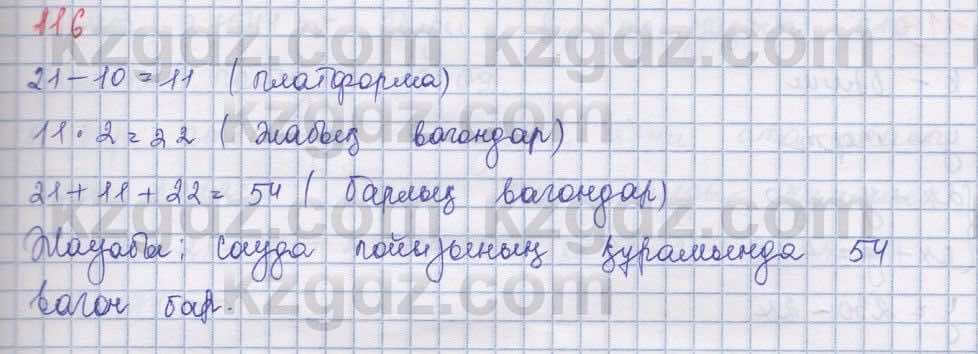 116
21-10=11 (платформа)
11·2=22 (жабық вагондар)
21+11+22=54 (барлық вагондар)
Жауабы: сауда пойызының құрамында 54
вагон бар.
kzgdz.com kzgdz.com
kzgdz.com kzgdz.com
kzgdz.com kzgdz.com
kzgdz.com